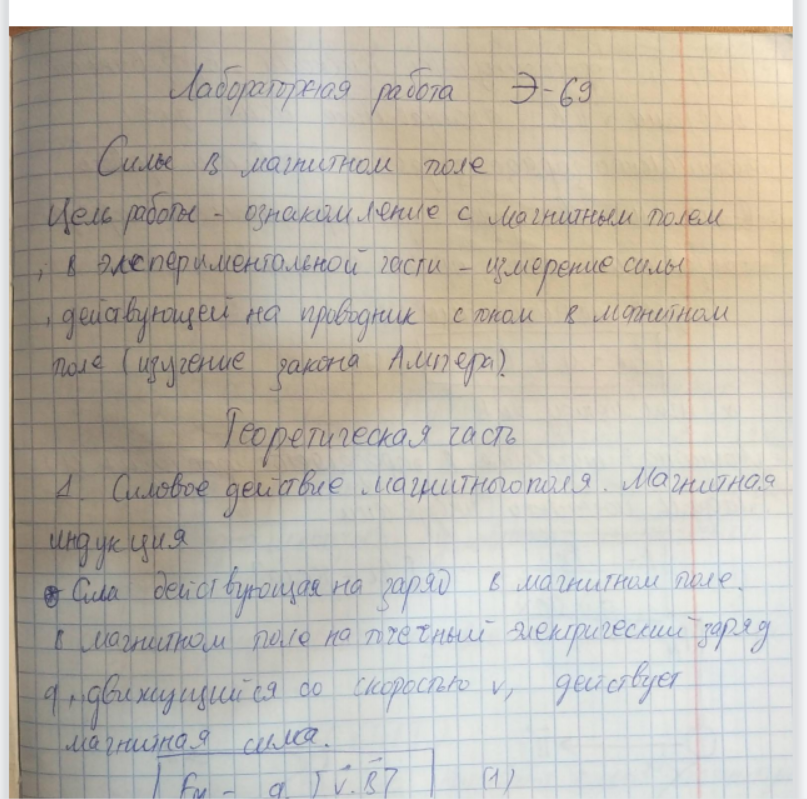 Лабораторная работа Э-69
Силы в магнитном поле
Цель работы - ознакомление с магнитным полем
, в экспериментальной части - измерение силы
, действующей на проводник с током в магнитном
поле (изучение закона Ампера).
Теоретическая часть
1. Силовое действие магнитного поля. Магнитная
индукция
Сила действующая на заряд в магнитном поле.
В магнитном поле на точечный электрический заряд
q, движущийся со скоростью v, действует
магнитная сила.
Fм = q [v⃗·B⃗] (1)